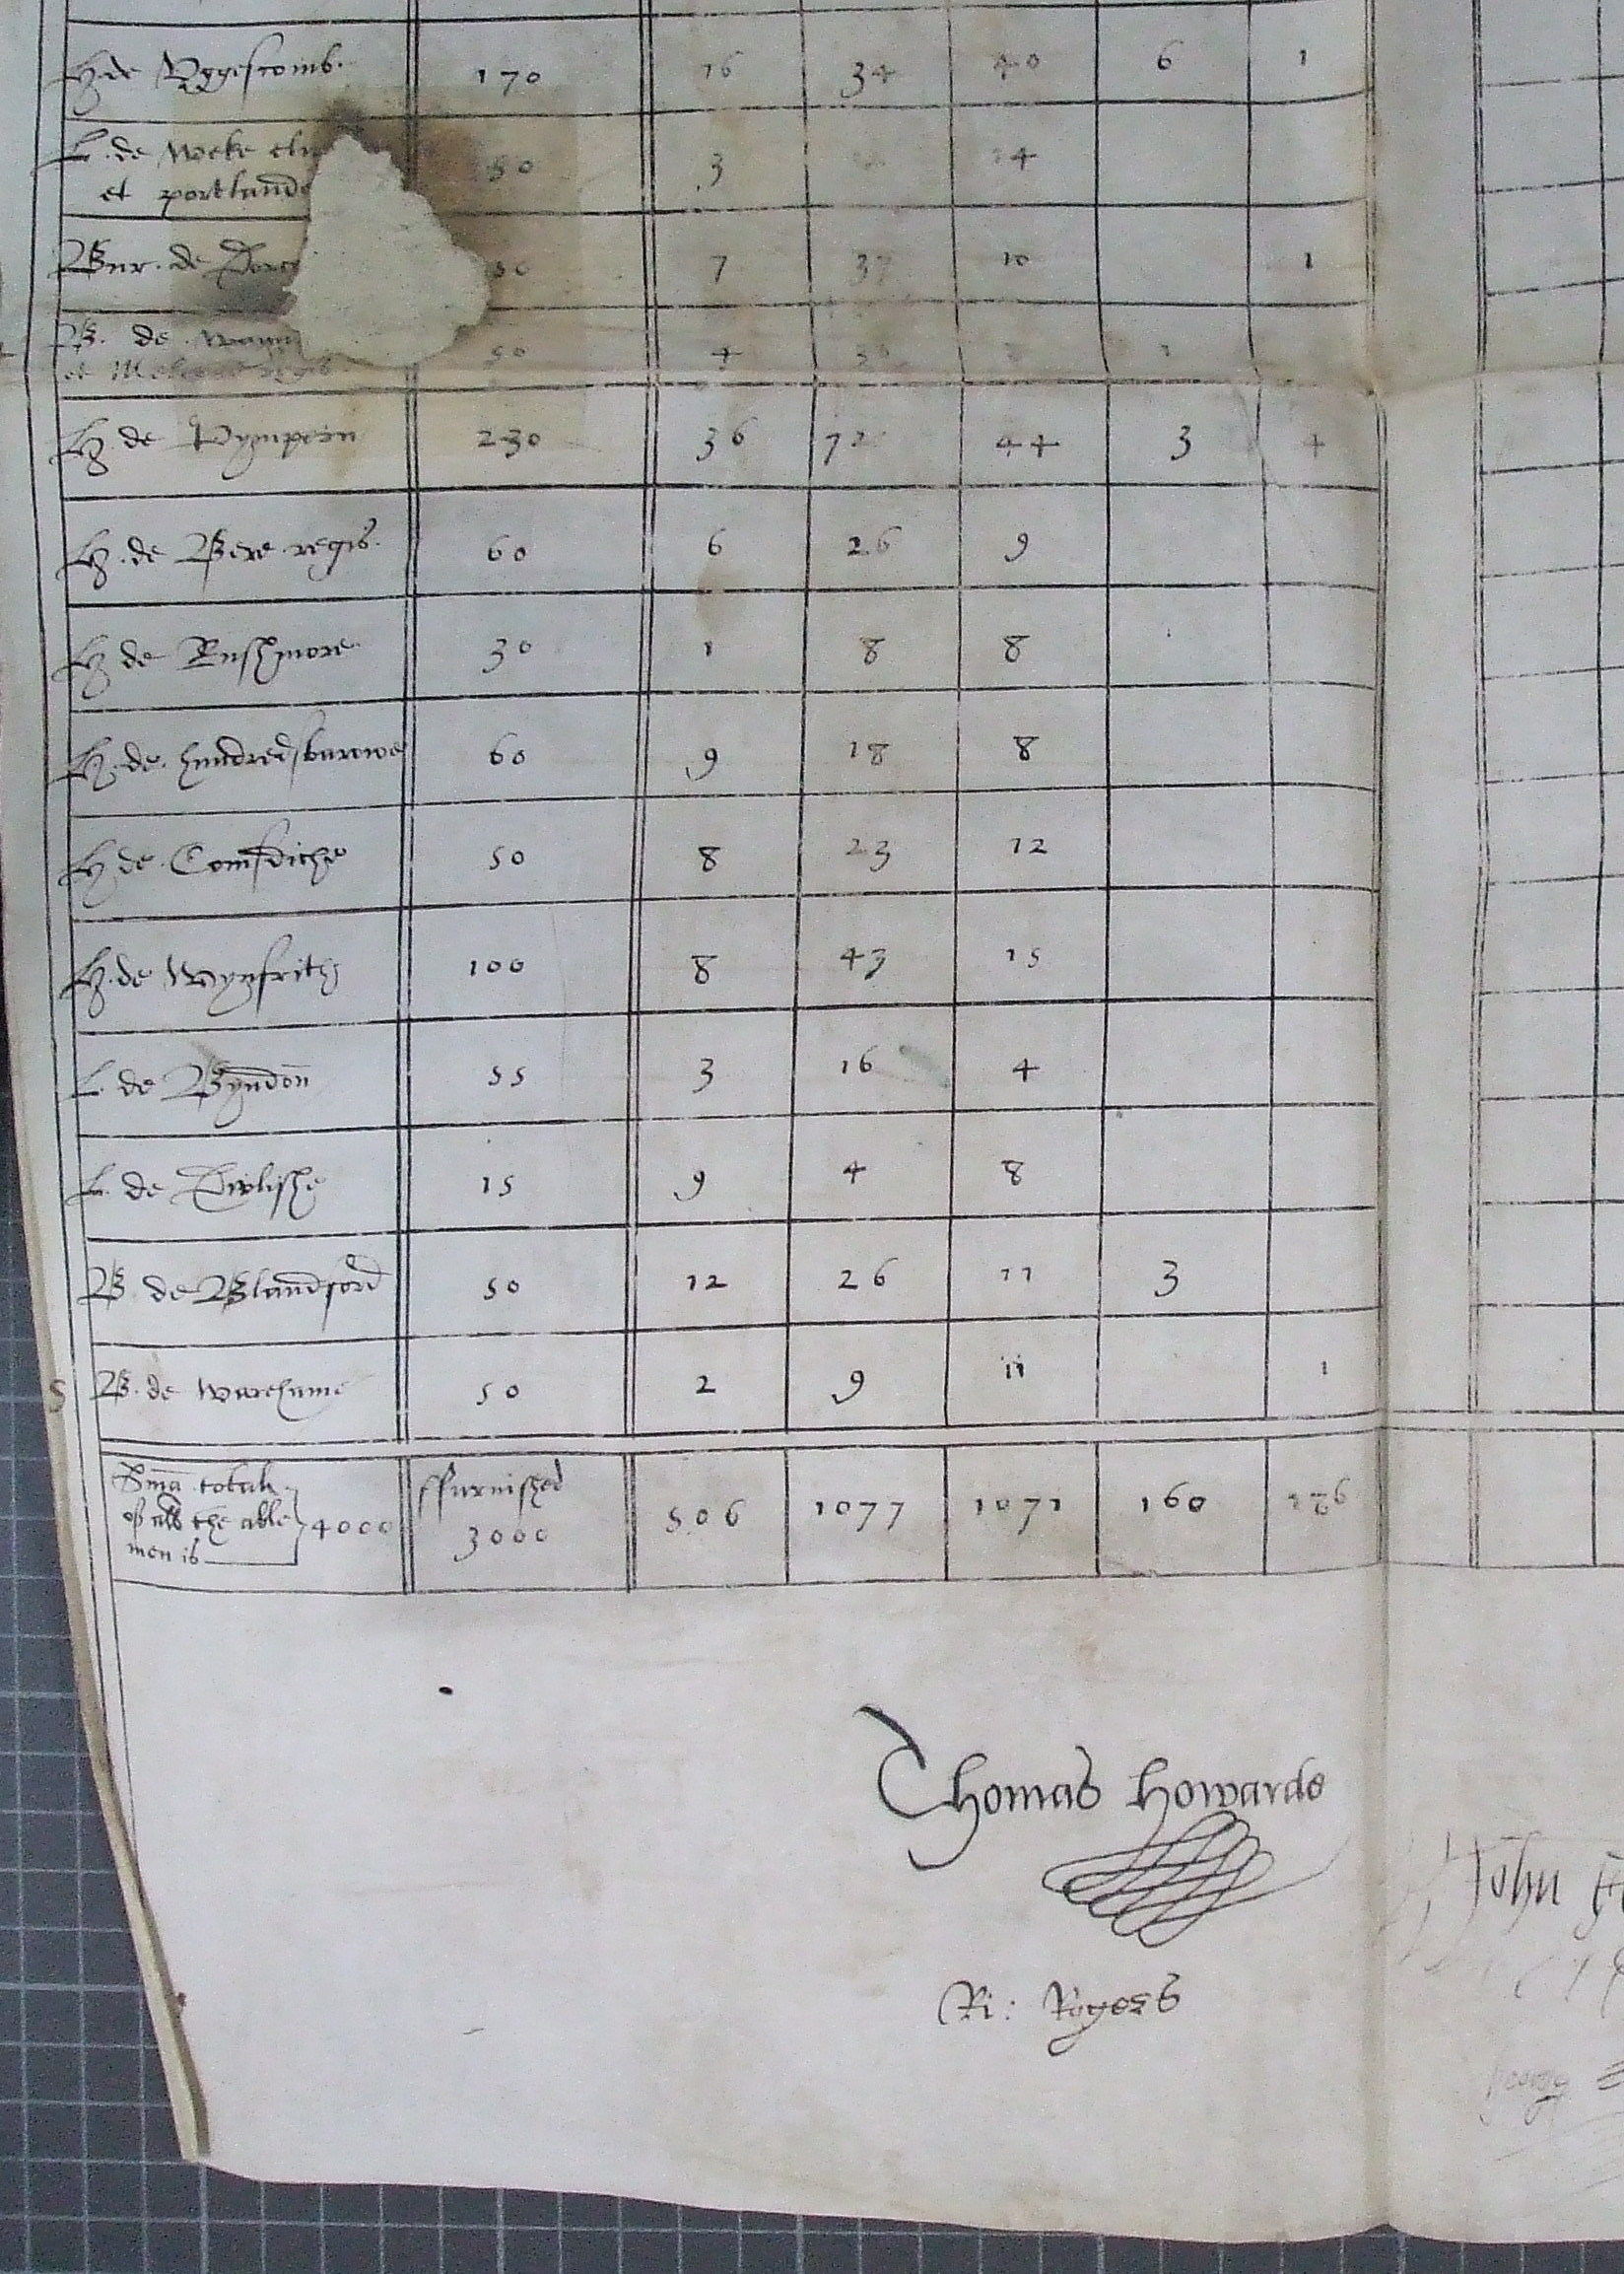 H. de Uggescomb. 170 16 34 40 6 1
L. de Weke
et portlande 50 3 14
Bur. de 50 7 37 10 1
B. de
et 50 4
H. de Pympern 230 36 72 44 3 4
H. de Bere regis. 60 6 26 9
H. de Rushmore 30 1 8 8
H. de. hundredsbarowe 60 9 18 8
H. de Comsdiche 50 8 23 12
H. de Wynfrith 100 8 43 15
L. de Byndon 55 3 16 4
L. de Dwlishe 15 9 4 8
B. de Blandford 50 12 26 11 3
B. de Warehame 50 2 9 11 1
Sma totall
of all the able 4000
men is
ffurnished
3000
506 1077 1071 160
Thomas Howarde
John
Ri: Rogers